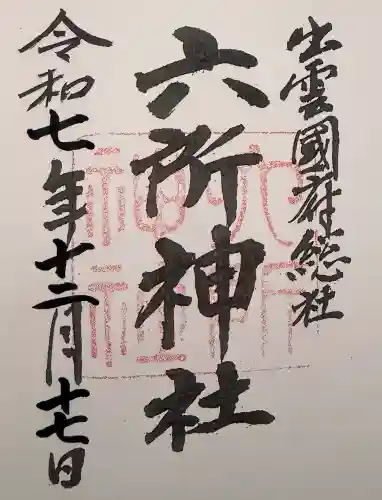 出雲國府総社
六所神社
令和七年十二月十七日